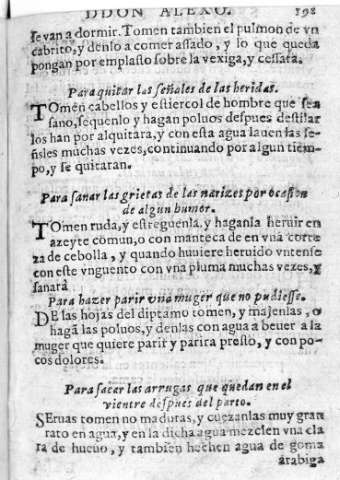 DDON ALEXO. 198
se van a dormir. Tomen tambien el pulmon de vn
cabrito, y denlo a comer assado, y lo que queda
pongan por emplasto sobre la vexiga, y cessara.
Para quitar las señales de las heridas.
Tomen cabellos y estiercol de hombre que sea
sano, sequenlo y hagan poluos despues destilar
los han por alquitara, y con esta agua lauen las se-
ñsles muchas vezes, continuando por algun tiem-
po, y se quitaran.
Para sanar las grietas de las narizes por ocasion
de algun humor.
Tomen ruda, y estreguenla, y haganla heruir en
azeyte comun, o con manteca de en vna corte
za de cebolla, y quando huuiere heruido vntense
con este vnguento con vna pluma muchas vezes, y
sanarà
Para hazer parir vna muger que no pudiesse.
DE las hojas del diptamo tomen, y majenlas, o
hagã las poluos, y denlas con agua a beuer a la
muger que quiere parir y parira presto, y con po-
cos dolores.
Para sacar las arrugas que quedan en el
vientre despues del parto.
SEruas tomen no maduras, y cuezanlas muy gran
rato en agua, y en la dicha agua mezclen vna cla
ra de hueuo, y tambien hechen agua de goma
arabiga